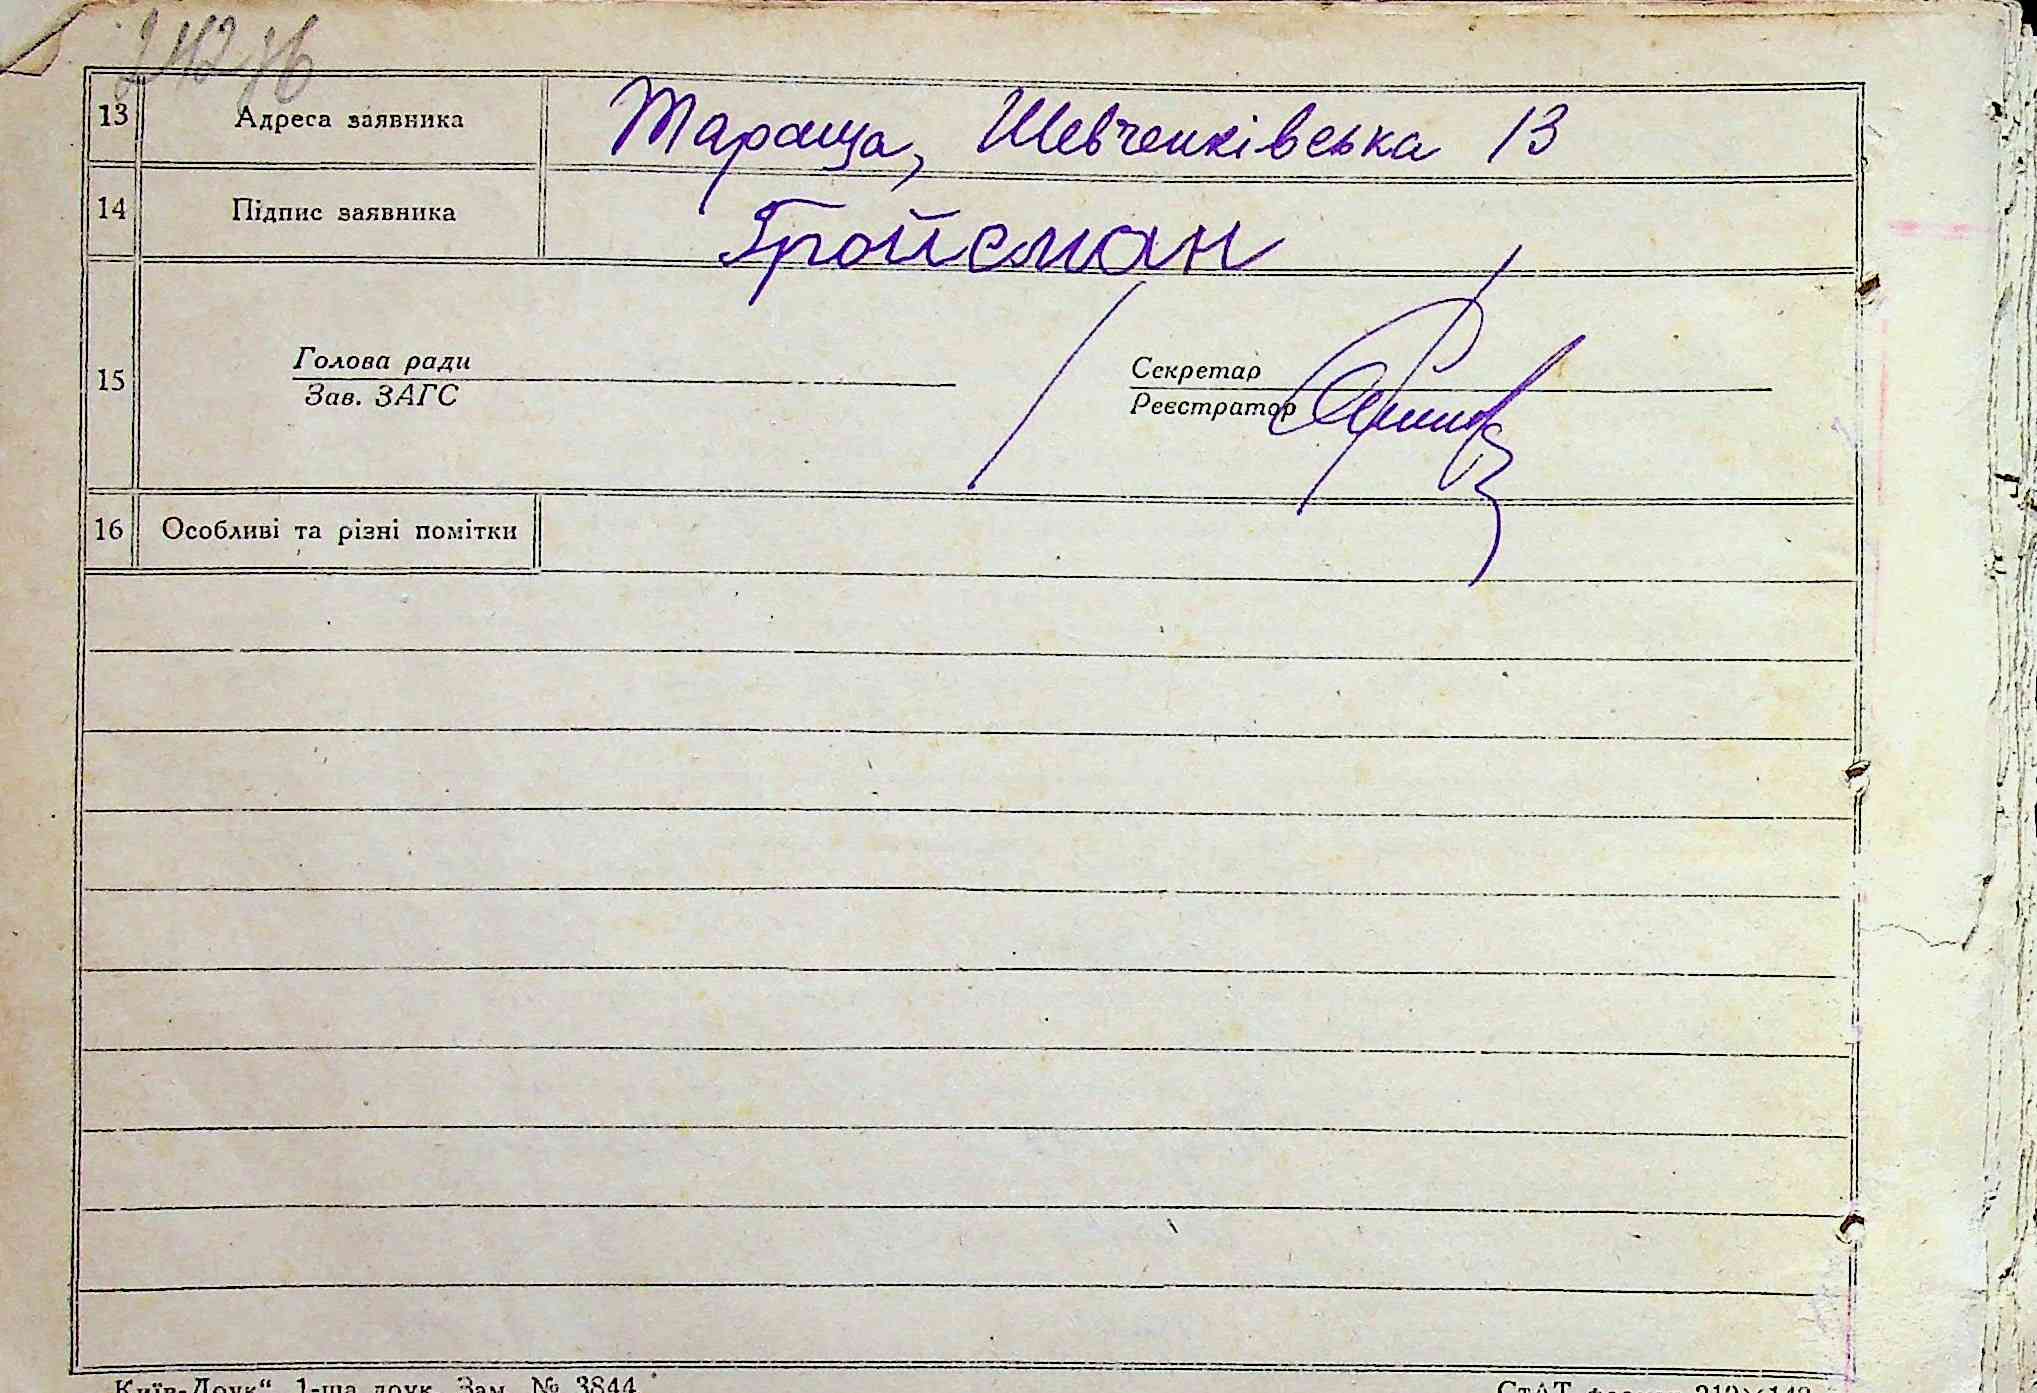 242 зв
13 Адреса заявника Тараща, Шевченківська 13
14 Підпис заявника Гройсман
15 Голова ради Секретар
Зав. ЗАГС Реєстратор
16 Особливі та різні помітки
Київ-Друк“ 1-ша друк. Зам. № 3844
СтАТ формат 210×148